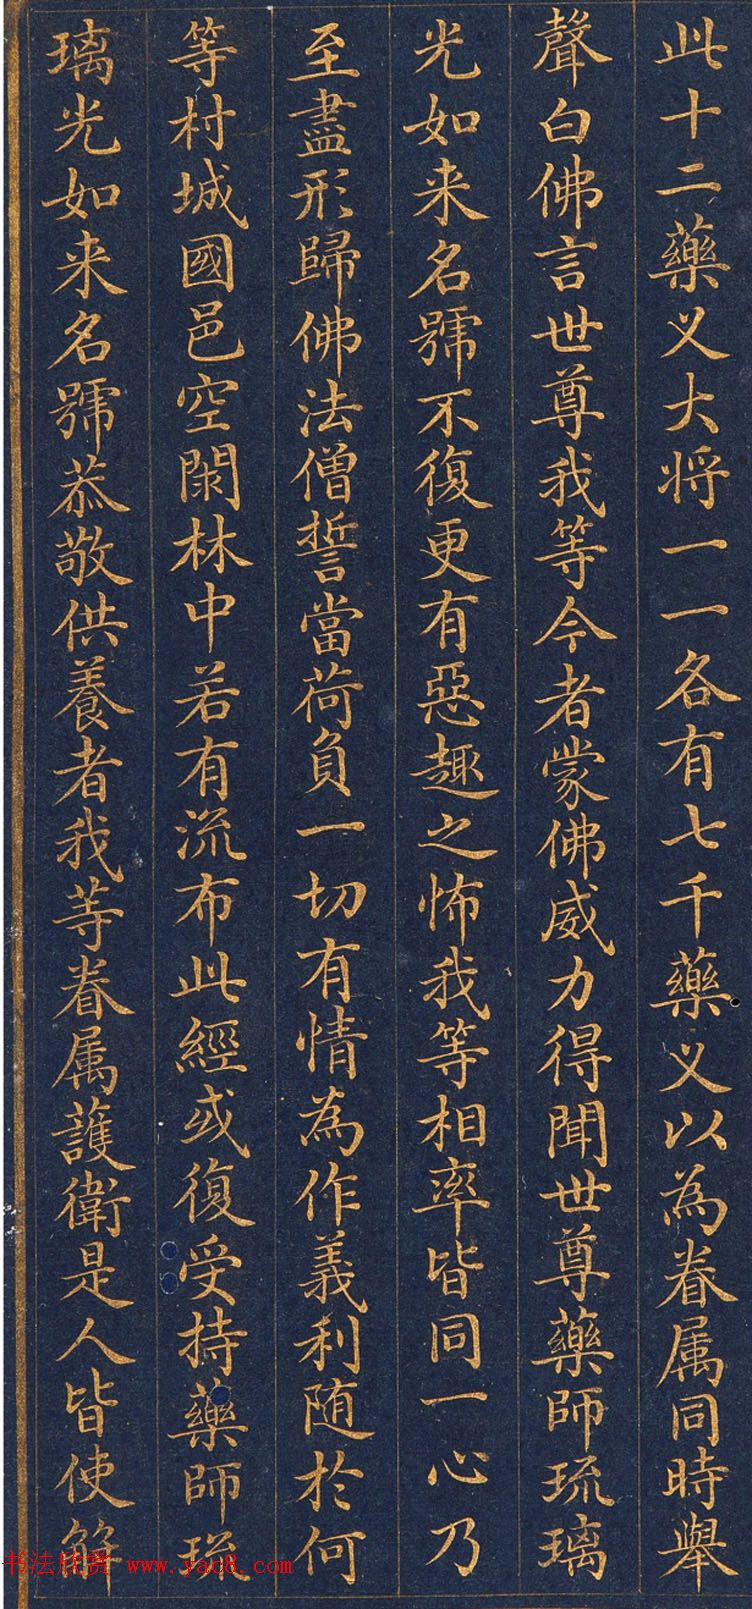 此十二藥义大将一一各有七千藥义以為眷属同時舉
聲白佛言世尊我等今者蒙佛威力得聞世尊藥師琉璃
光如来名號不復更有惡趣之怖我等相率皆同一心乃
至盡形歸佛法僧誓當荷負一切有情為作義利随於何
等村城國邑空閑林中若有流布此經或復受持藥師琉
璃光如来名號恭敬供養者我等眷属護衛是人皆使解
书法欣赏 www.yac8.com